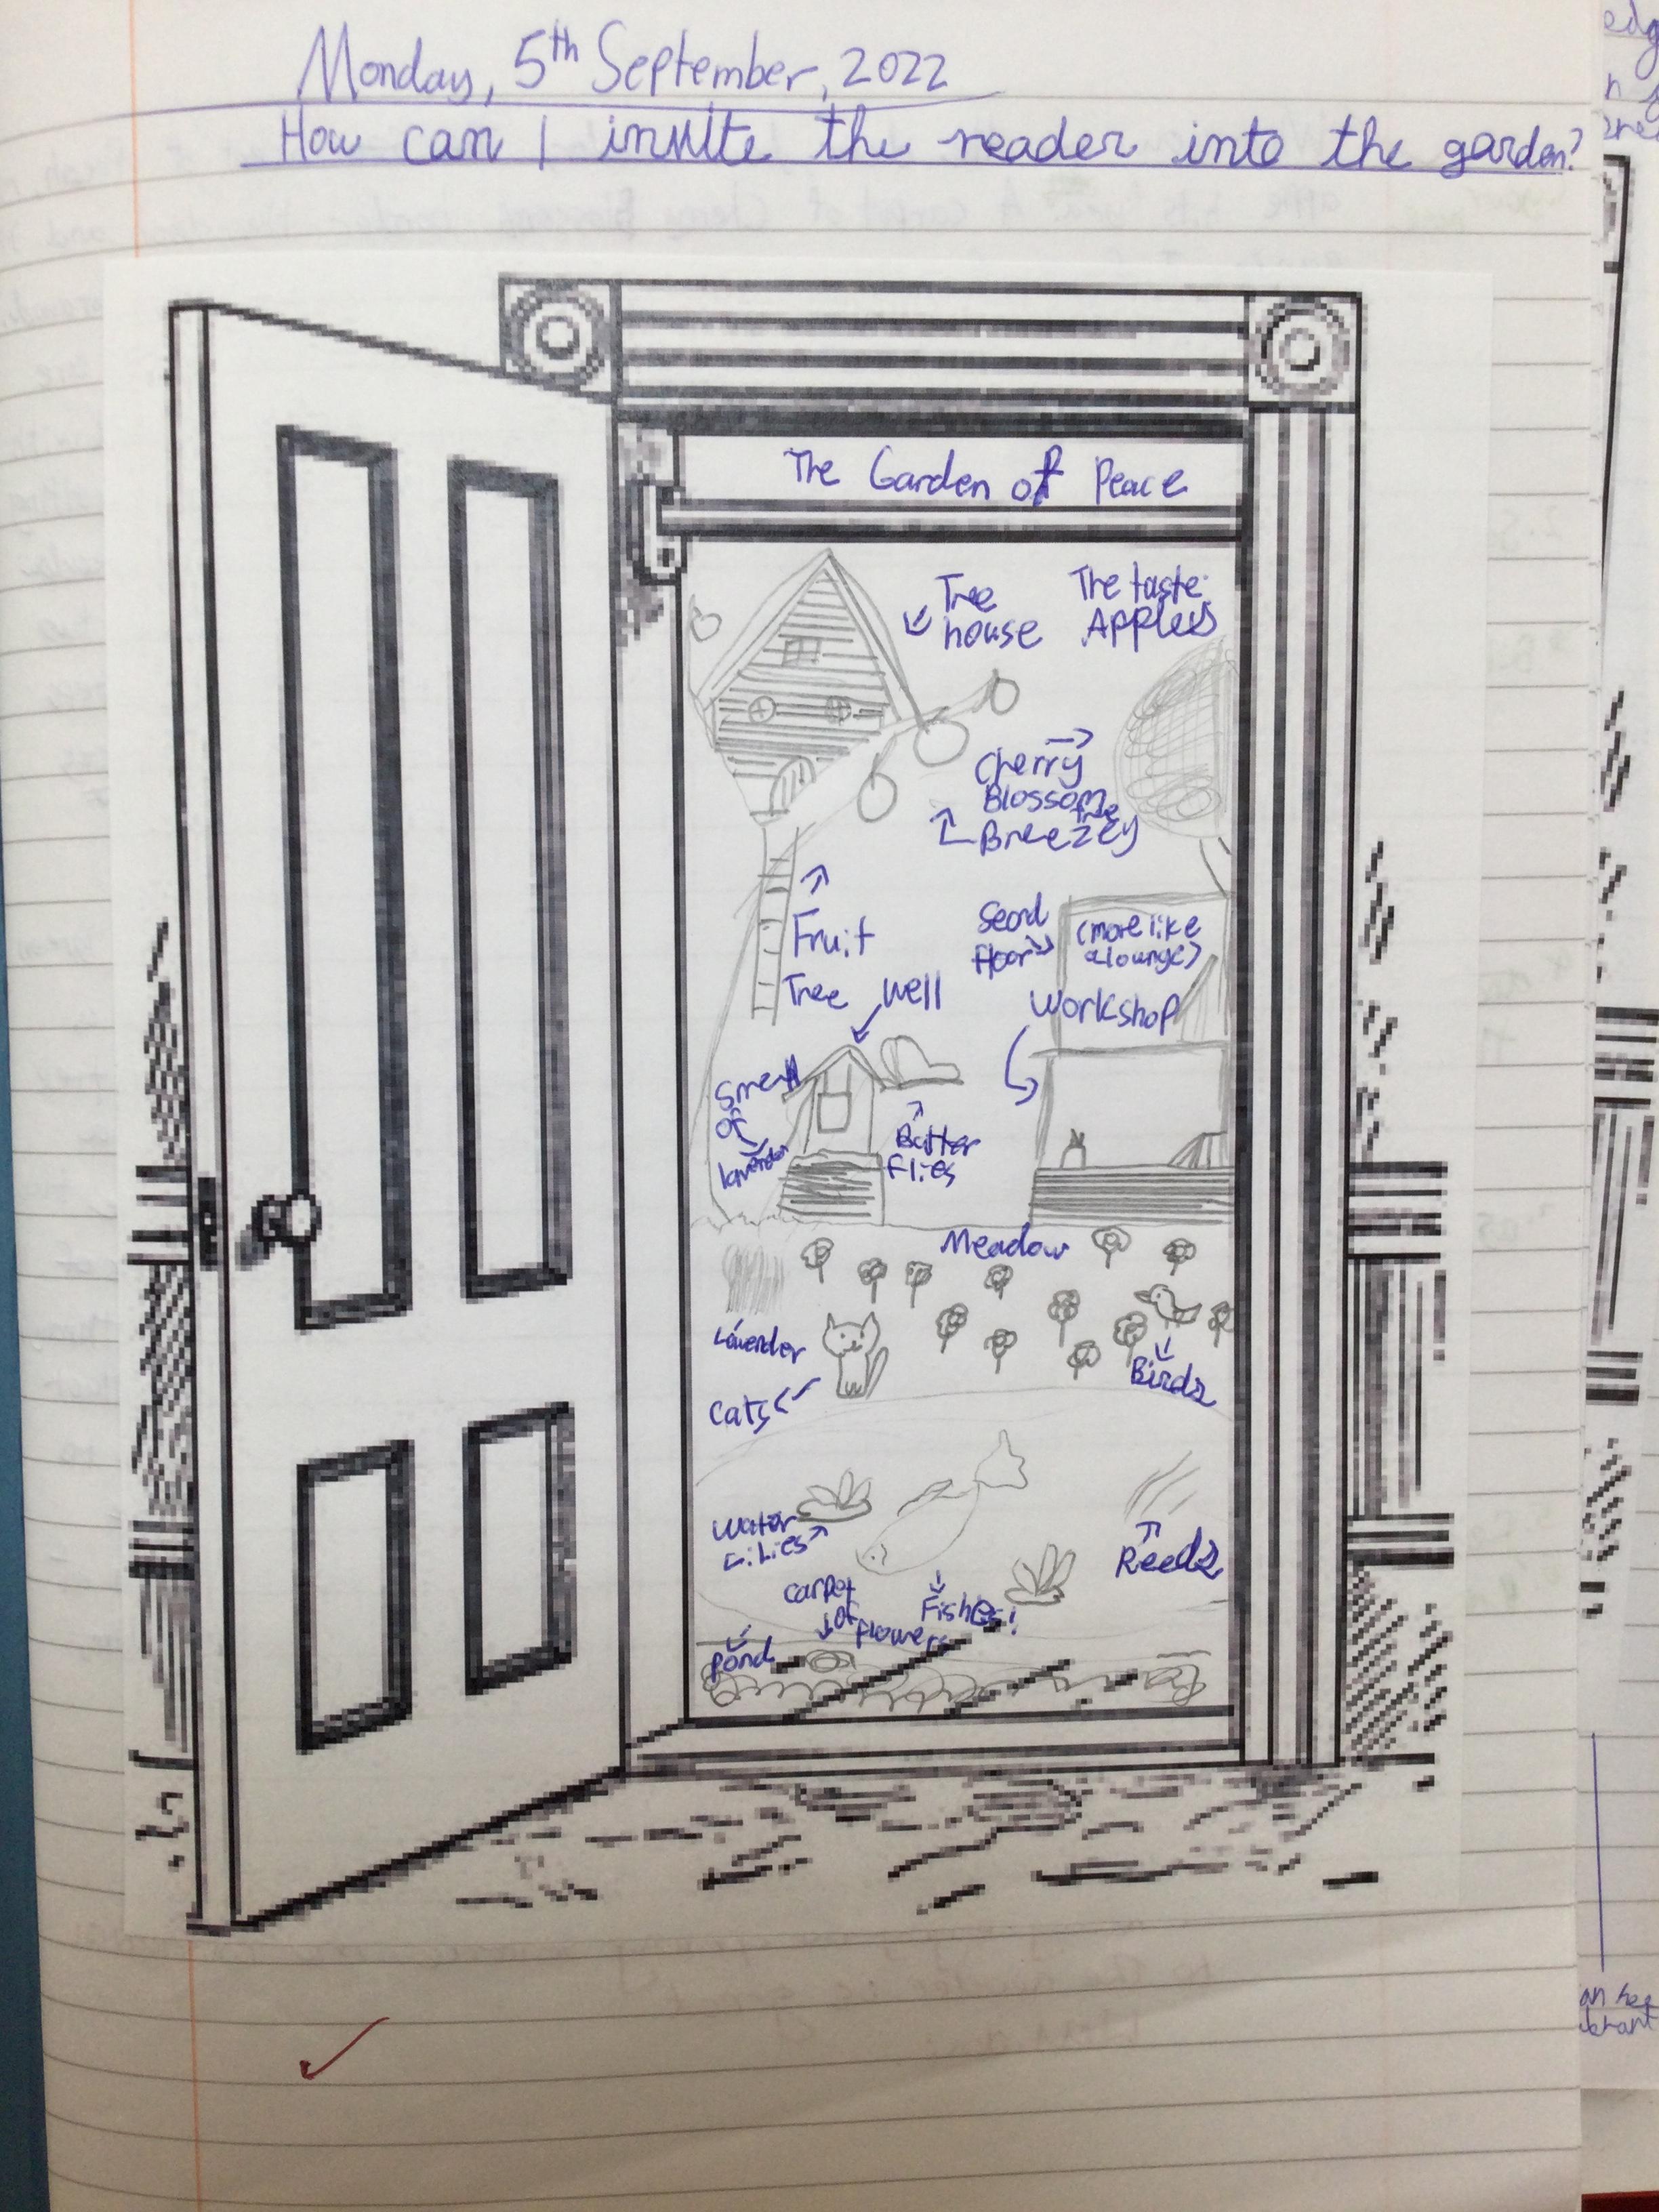 Monday, 5th September, 2022
How can I invite the reader into the garden?
The Garden of Peace
Tree
house
The taste:
Apples
Cherry
Blossom
tree
Breezey
Fruit
Tree
Seond
floor
(more like
a lounge)
Well
Workshop
Smell
of
lavender
Butter
flies
Meadow
Lavender
Cats
Birds
Water
Lilies
Reeds
Carpet
of
flowers
Fishes!
Pond